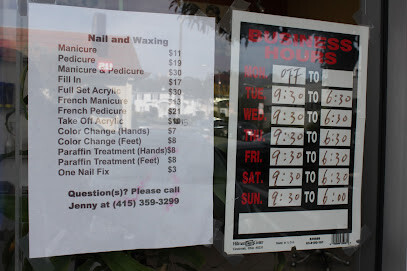 Nail and Waxing
Manicure $11
Pedicure $19
Manicure & Pedicure $30
Fill In $17
Full Set Acrylic $30
French Manicure $13
French Pedicure $21
Take Off Acrylic
Color Change (Hands) $7
Color Change (Feet) $8
Paraffin Treatment (Hands) $8
Paraffin Treatment (Feet) $8
One Nail Fix $3
Question(s)? Please call
Jenny at (415) 359-3299
BUSINESS
HOURS
MON. OFF TO -
TUE. 9:30 TO 6:30
WED. 9:30 TO 6:30
THU. 9:30 TO 6:30
FRI. 9:30 TO 6:30
SAT. 9:30 TO 6:30
SUN. 9:30 TO 6:00